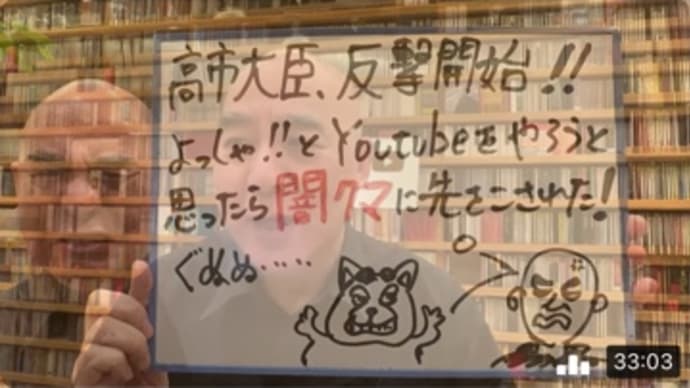 高市大臣、反撃開始!!
よっしゃ!!とYoutubeをやろうと
思ったら闇クマに先をこされた!
ぐぬぬ‥‥‥
33:03